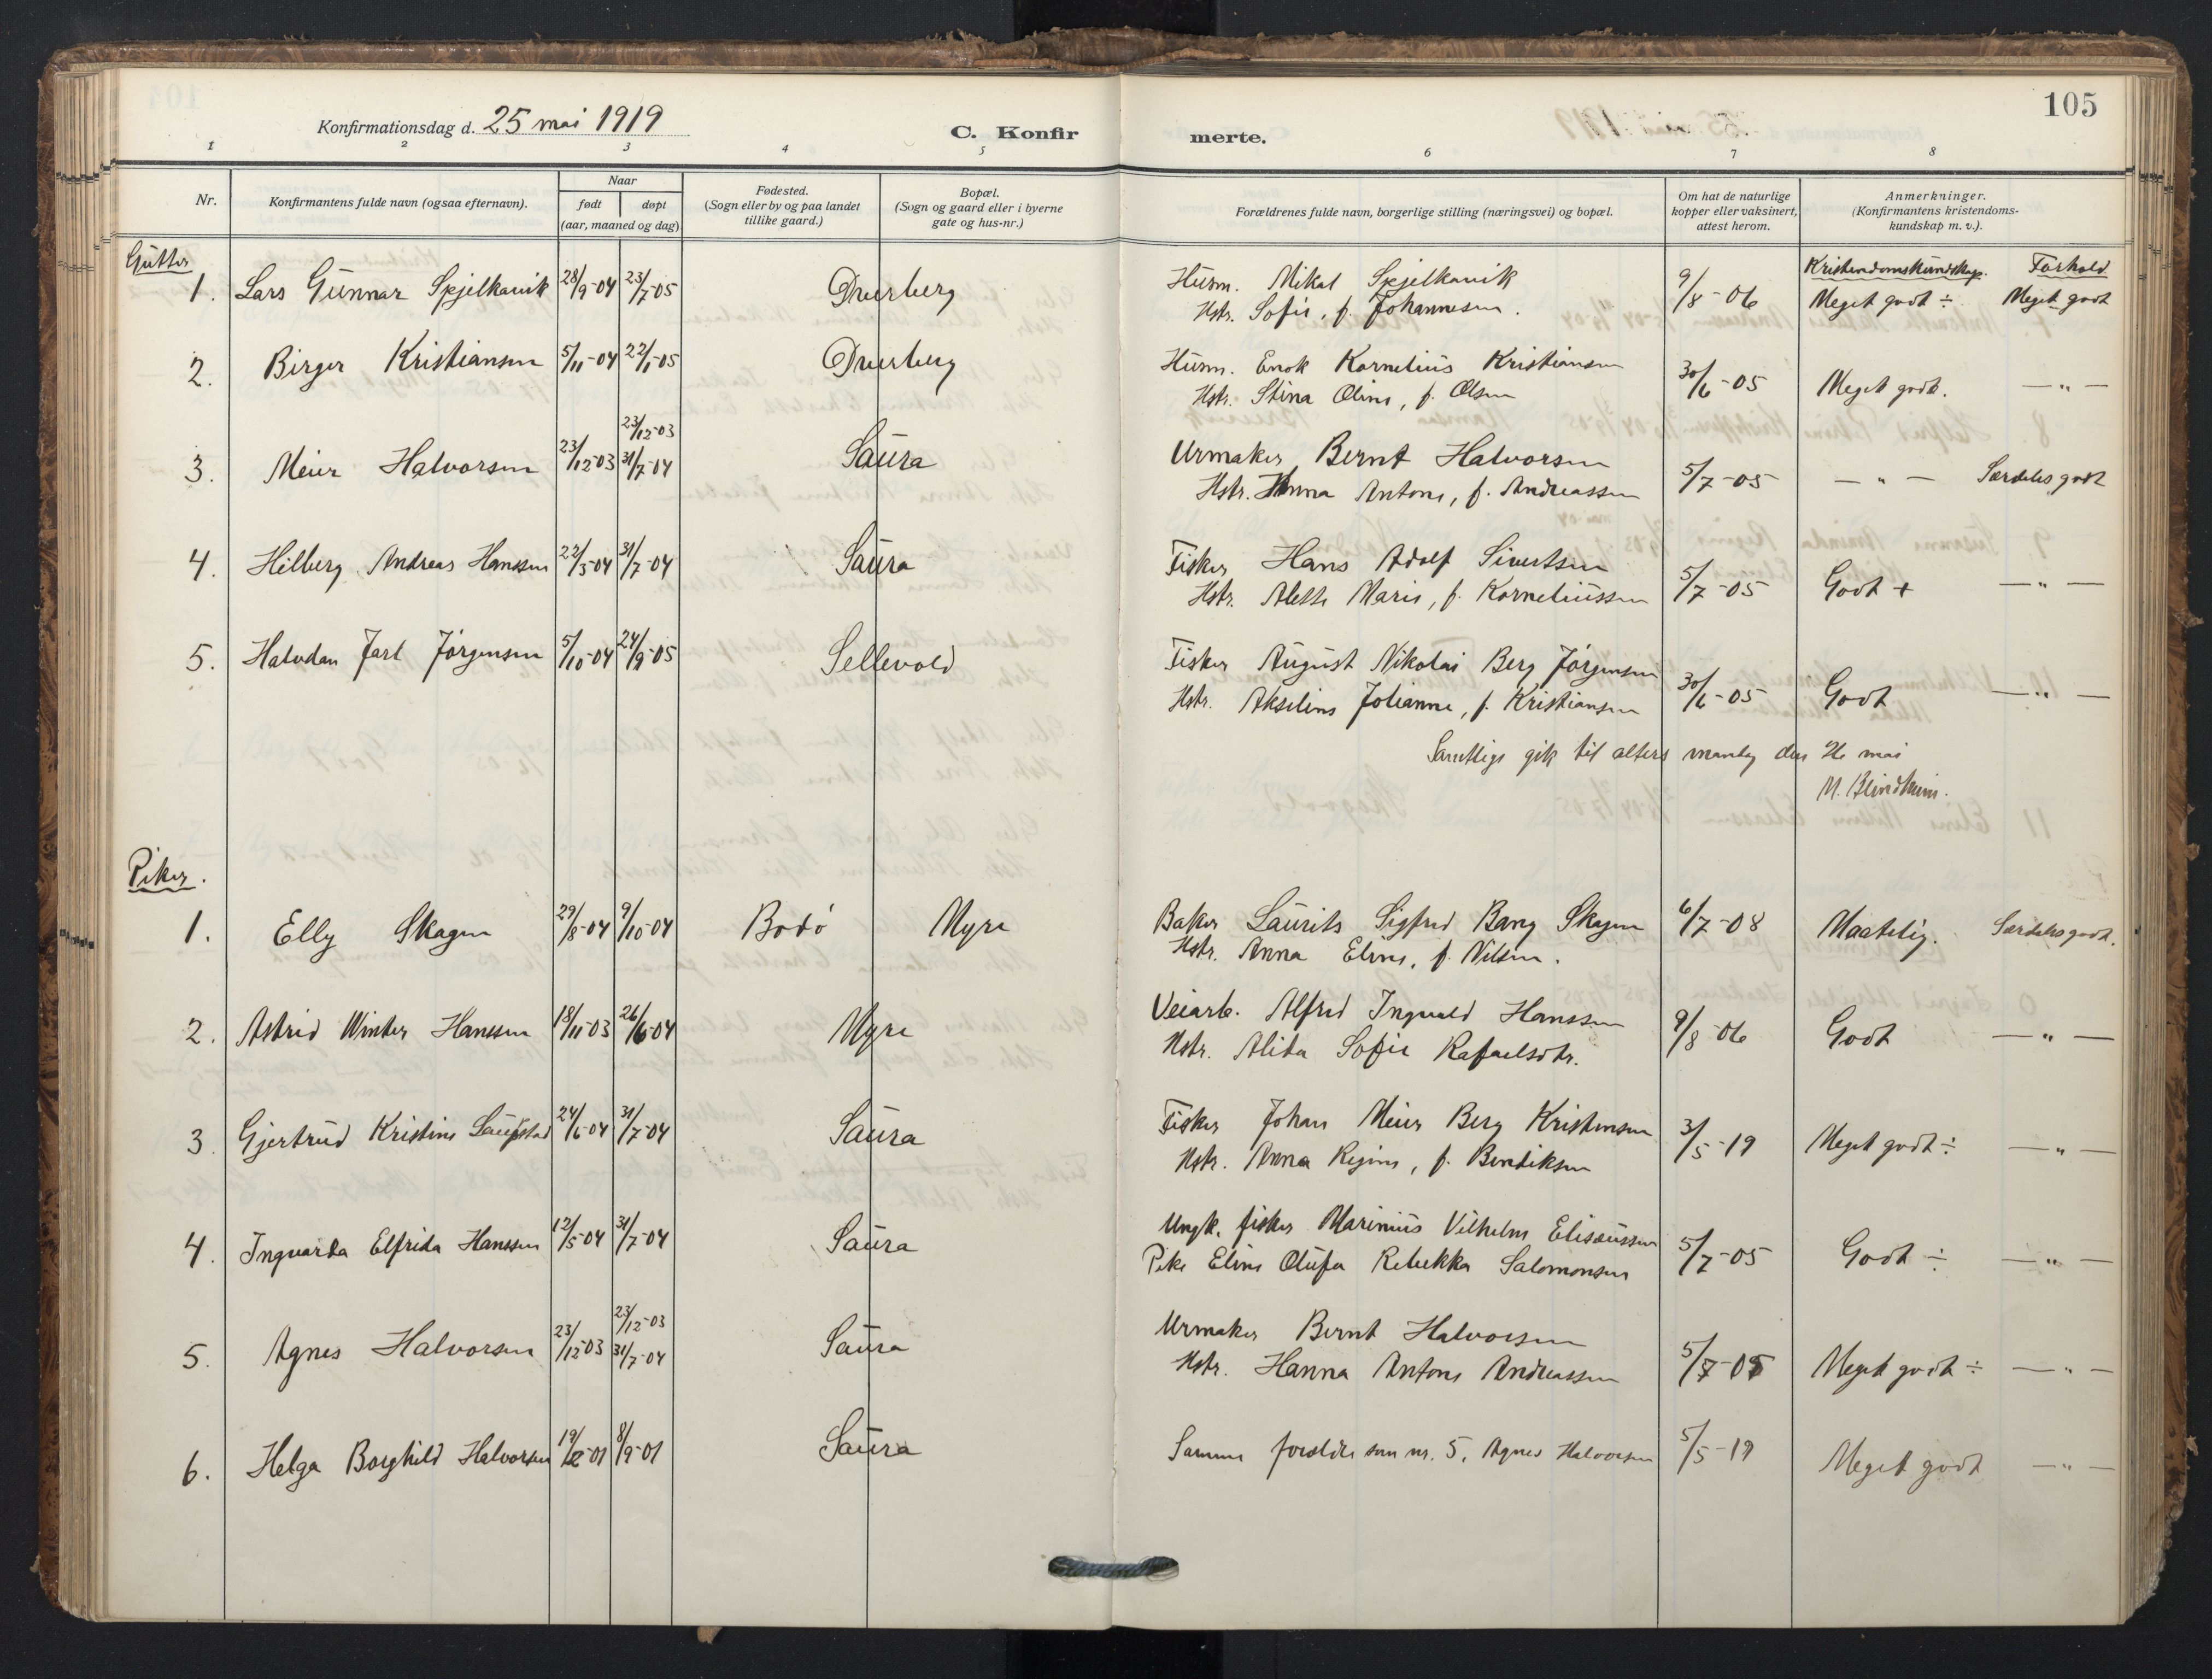 105
Konfirmationsdag d. 25 mai 1919
C. Konfirmerte.
1 2 3 4 5 6 7 8
Nr.
Konfirmantens fulde navn (ogsaa efternavn).
Naar
født døpt
(aar, maaned og dag)
Fødested.
(Sogn eller by og paa landet
tillike gaard.)
Bopæl.
(Sogn og gaard eller i byerne
gate og hus-nr.)
Forældrenes fulde navn, borgerlige stilling (næringsvei) og bopæl.
Om hat de naturlige
kopper eller vaksinert,
attest herom.
Anmerkninger.
(Konfirmantens kristendoms-
kundskap m. v.).
Gutter
Kristendomskundskap. Forhold
1. Lars Gunnar Spjelkavik 28/9-04 23/7-05 Dverberg Husm. Mikal Spjelkavik 9/8-06 Meget godt ÷ Meget godt
Hstr. Sofie, f. Johannesen.
2. Birger Kristiansen 5/11-04 22/1-05 Dverberg Husm. Enok Kornelius Kristiansen 30/6-05 Meget godt. — " —
Hstr. Stina Oline, f. Olsen
23/12-03
3. Meier Halvorsen 23/12-03 31/7-04 Saura Urmaker Bernt Halvorsen 5/7-05 — " — Særdeles godt
Hstr. Hanna Antone, f. Andreassen
4. Hilberg Andreas Hanssen 22/3-04 31/7-04 Saura Fisker Hans Adolf Sivertsen 5/7-05 Godt + — " —
Hstr. Alette Marie, f. Korneliussen
5. Halvdan Jarl Jørgensen 5/10-04 24/9-05 Sellevold Fisker August Nikolai Berg Jørgensen 30/6-05 Godt — " —
Hstr. Akseline Johanne, f. Kristiansen
Samtlige gik til alters mandag den 26 mai
M. Blindheim.
Piker.
1. Elly Skagen 29/8-04 9/10-04 Bodø Myre Baker Laurits Sigfred Bang Skagen 6/7-08 Maatelig. Særdeles godt.
Hstr. Anna Eline, f. Nilsen.
2. Astrid Winter Hanssen 18/11-03 26/6-04 Myre Veiarb. Alfred Ingvald Hanssen 9/8-06 Godt — " —
Hstr. Alida Sofie Rafaelsdtr.
3. Gjertrud Kristine Laupstad 24/6-04 31/7-04 Saura Fisker Johan Meier Berg Kristensen 3/5-19 Meget godt ÷ — " —
Hstr. Anna Regine, f. Bendiksen
4. Ingvarda Elfrida Hanssen 12/5-04 31/7-04 Saura Ungk. fisker Marinius Vilhelm Eliseussen 5/7-05 Godt ÷ — " —
Pike Eline Olufa Rebekka Salomonsen
23/12-03
5. Agnes Halvorsen 23/12-03 31/7-04 Saura Urmaker Bernt Halvorsen 5/7-05 Meget godt ÷ — " —
Hstr. Hanna Antone Andreassen
6. Helga Borghild Halvorsen 19/2-01 8/9-01 Saura Samme forældre som nr. 5, Agnes Halvorsen 5/5-19 Meget godt — " —